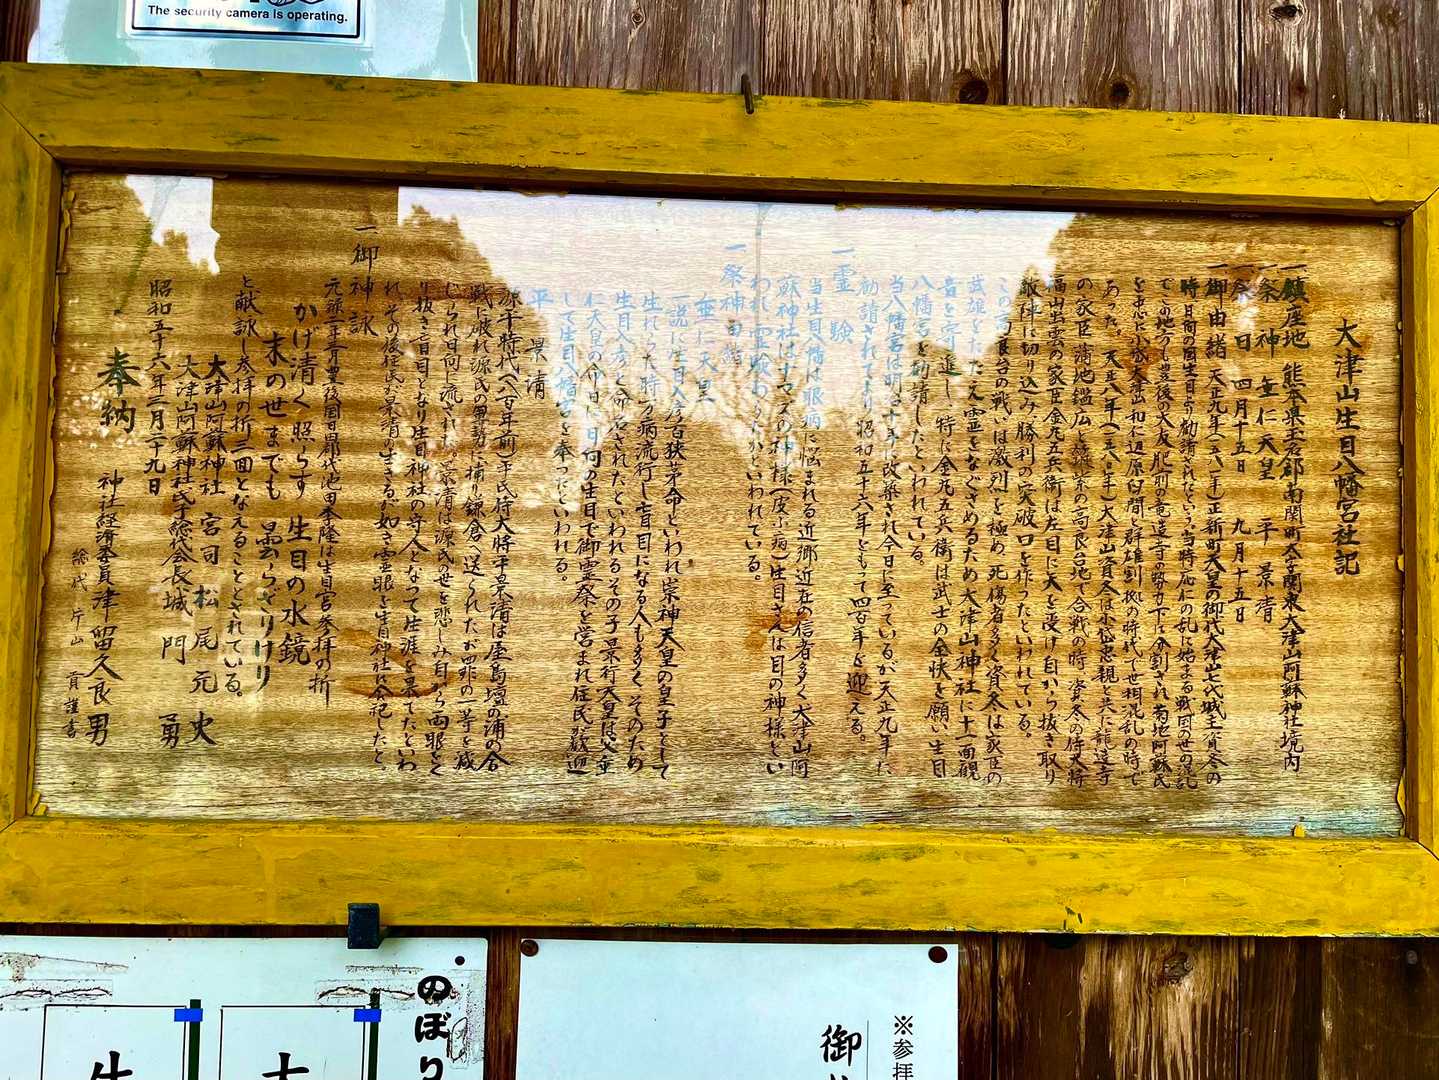 The security camera is operating.
大津山生目八幡宮社記
一鎮座地 熊本県玉名郡南関町大字関東大津山阿蘇神社境内
一祭神 垂仁天皇 平景清
一祭日 四月十五日 九月十五日
一御由緒 天正九年(一五八一年)正新町天皇の御代大津山七代城主資冬の
時日向の国生目より勧請されたという。当時応仁の乱に始まる戦国の世の混乱
でこの地方も豊後の大友、肥前の竜造寺の勢力下に分割され菊地阿蘇氏
を中心に小代大津山和仁辺原臼間と群雄割拠の時代で世相混乱の時で
あった。天正八年(一五八〇年)大津山資冬は小代忠親と共に龍造寺
の家臣蒲池鑑広と 高良台地で合戦の時、資冬の侍大将
福山出雲の家臣金丸五兵衛は左目に矢を受け自から抜き取り
敵陣に切り込み勝利の突破口を作ったといわれている。
この 高良台の戦いは激烈を極め、死傷者多く資冬は家臣の
武雄をたたえ霊をなぐさめるため大津山神社に十一面観
音を寄進し、特に金丸五兵衛は武士の全快を願い生目
八幡宮を勧請したといわれている。
当八幡宮は明 十年に改築され今日に至っているが天正九年に
勧請されてより昭和五十六年をもって四百年を迎える。
一霊験
当生目八幡は眼病に悩まれる近郷近在の信者多く大津山阿
蘇神社はナマズの神様(皮ふ病)生目さんは目の神様とい
われ、霊験あらたかといわれている。
一祭神由緒
垂仁天皇
一説に生目入彦五百狭茅命といわれ崇神天皇の皇子として
生れられた時、方病流行し盲目になる人も多くそのため
生目入彦と命名されたといわれるその子景行天皇は父垂
仁天皇の命日に日向の生目で御霊祭を営まれ住民が歓迎
して生目八幡宮を奉ったといわれる。
平景清
源平時代(八百年前)平氏侍大将平景清は屋島壇の浦の合
戦に破れ源氏の軍勢に捕り鎌倉へ送られたが罪の一等を減
じられ日向に流された。景清は源氏の世を悲しみ自から両眼をく
り抜き盲目となり生目神社の守人となって生涯を果てたといわ
れ、その後住民が景清の生きるが如き霊眼を生目神社に合祀したと。
一御神詠
元禄 年 月豊後国日田代池田季隆は生目宮参拝の折
かげ清く照らす生目の水鏡
末の世までも曇らざりけり
と献詠し参拝の折三回となえることとされている。
大津山阿蘇神社 宮司 松尾元史
大津山阿蘇神社氏子総代会長 城門 勇
昭和五十六年三月二十九日
神社経済委員 津留久良男
奉納
総代 片山 貢 謹書
のぼり
生
大
御
※参拝